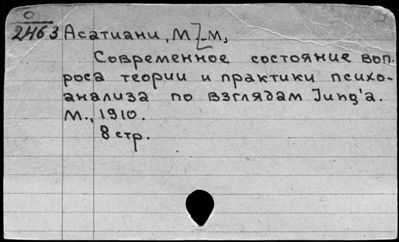 О
2463 Асатиани, М. М,
Современное состояние воп-
роса теории и практики психо-
анализа по взглядам Jung'a.
М., 1910.
8 стр.